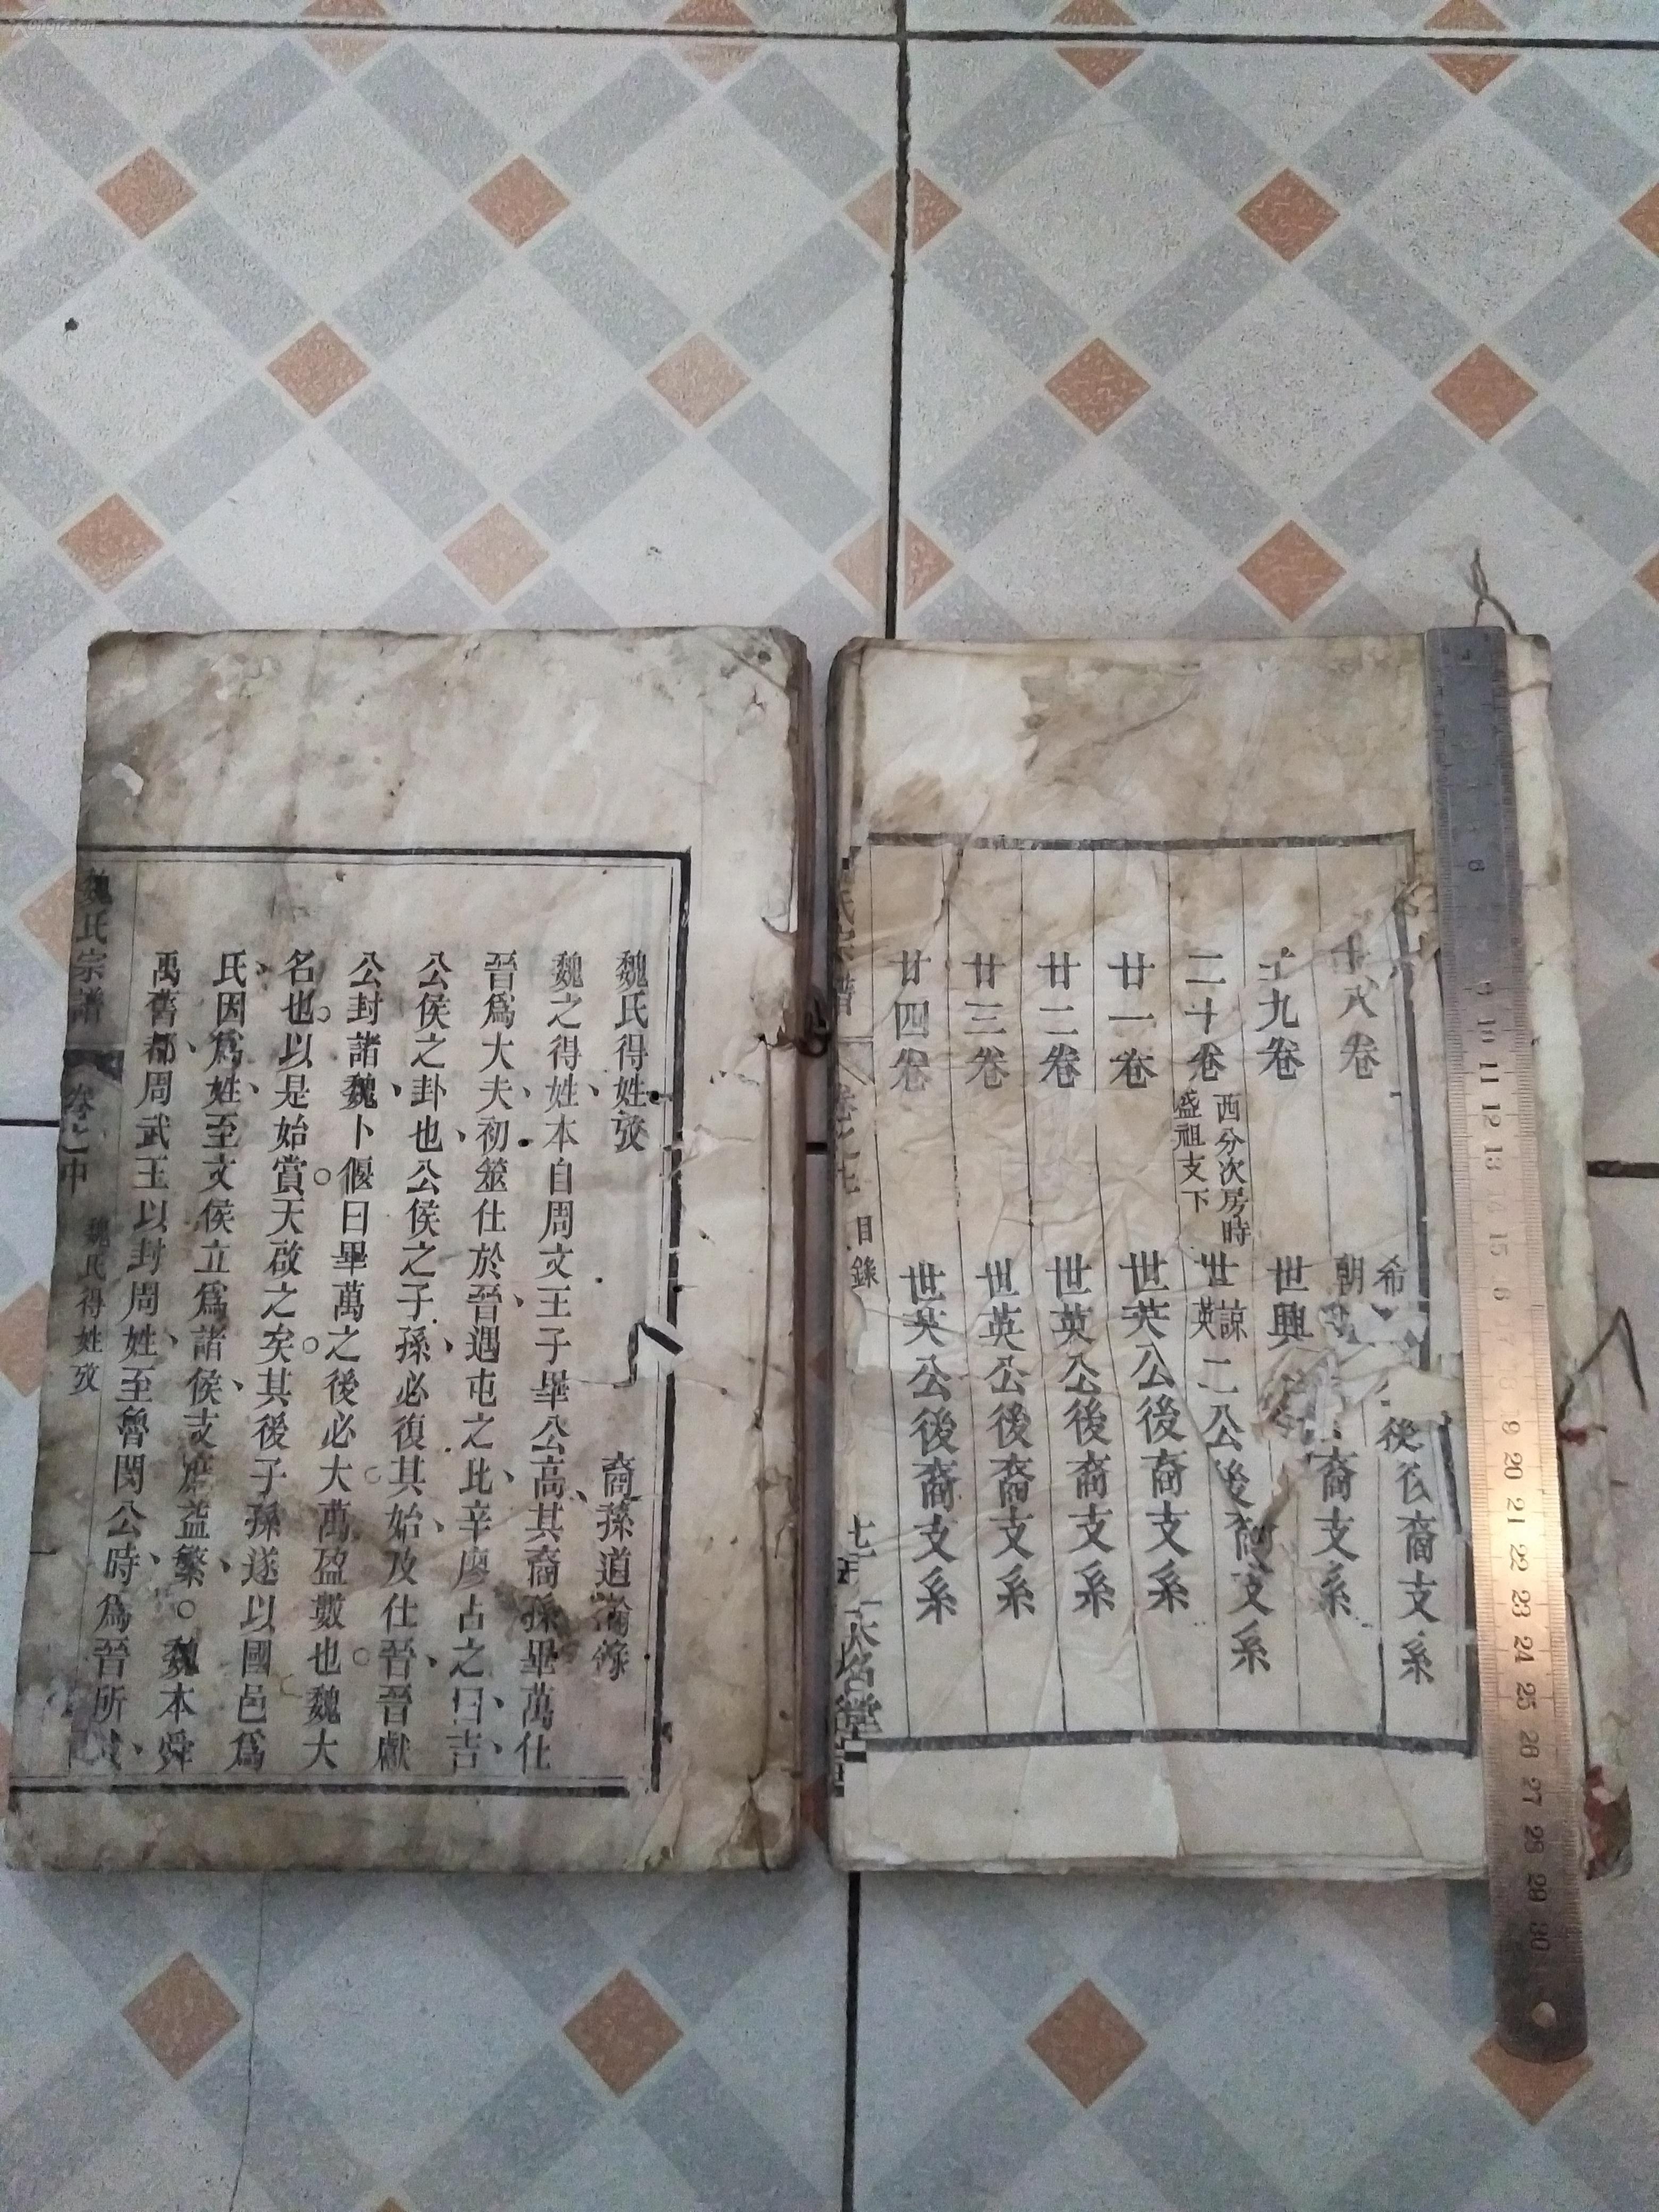 十八卷 希朝 後裔支系
十九卷 世興 裔支系
二十卷 西分次房時盛祖支下 世諒英二公後裔支系
廿一卷 世英公後裔支系
廿二卷 世英公後裔支系
廿三卷 世英公後裔支系
廿四卷 世英公後裔支系
氏宗譜 卷之七 目錄 七 大名堂
魏氏得姓攷 裔孫道瀹
魏之得姓本自周文王子畢公高其裔孫畢萬仕
晉爲大夫初筮仕於晉遇屯之比辛廖占之曰吉
公侯之卦也公侯之子孫必復其始及仕晉晉獻
公封諸魏卜偃曰畢萬之後必大萬盈數也魏大
名也以是始賞天啟之矣其後子孫遂以國邑爲
氏因爲姓至文侯立爲諸侯支庶益繁○魏本舜
禹舊都周武王以封周姓至魯閔公時爲晉所
魏氏宗譜 卷之中 魏氏得姓攷
9 10 11 12 13 15 6 17 9 20 21 22 23 24 25 26 27 28 29 30